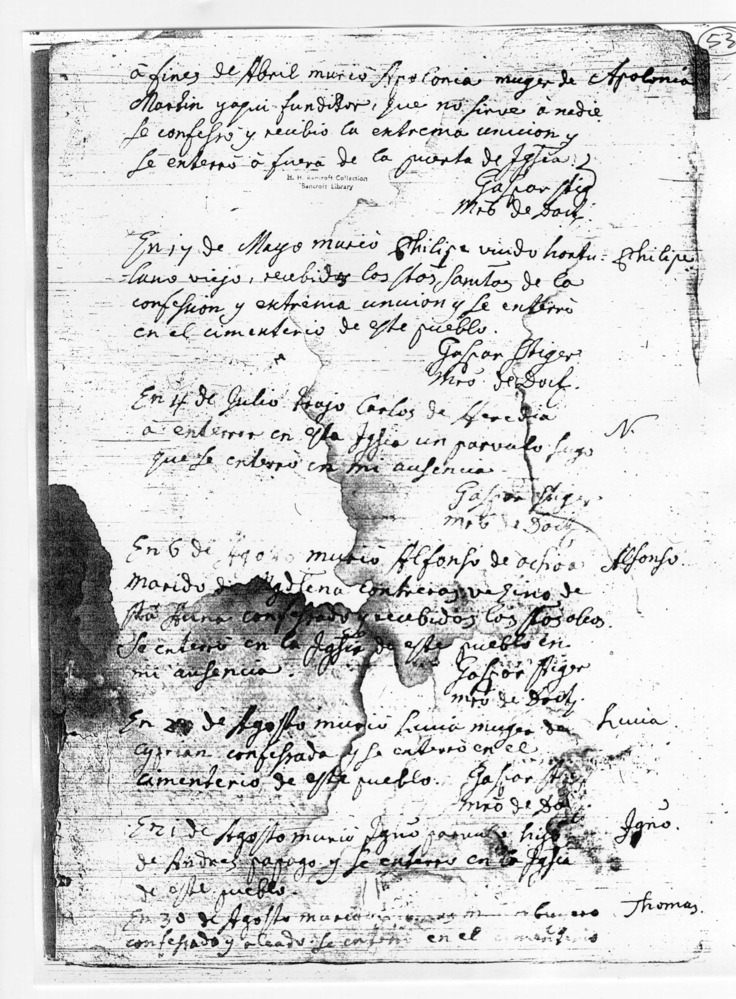 53
â fines de Abril murió Apolonia muger de Apolonia
Martin yaqui funditor, que no sirve â nadie
se confessó y recibio la extrema uncion y
se enterró â fuera de la puerta de Igsia.
H. H. Bancroft Collection
Bancroft Library
Gaspar Stig
Mro de Doct.
En 17 de Mayo murió Phelipe viudo hortu- Phelipe
lano viejo, recebidos los stos santos de la
confesion y extrema uncion y se enterró
en el cimenterio de este pueblo.
Gaspar Stiger
Mro de Doct.
En 4 de Julio trajo Carlos de Heredia
a enterrar en esta Igsia un parvulo suyo N.
que se enterró en mi ausencia.
Gaspar Stiger
Mro de Doct.
En 6 de Agosto murió Alfonso de ochoa Alfonso
Marido de Magdalena contreras vezino de
Sta Anna confesado y recebidos los stos oleos.
Se enterró en la Igsia de este pueblo en
mi ausencia. Gaspar Stiger
Mro de Doct.
En de Agosto murió Lucia muger de Lucia
Cyprian confessada y se enterró en el
cimenterio de este pueblo. Gaspar Stig
Mro de Do
En de Agosto murió Igno parvulo hijo Igno.
de Andres papago y se enterró en la Igsia
de este pueblo.
En 30 de Agosto murió Thomas
confessado y oleado se enterró en el cimenterio